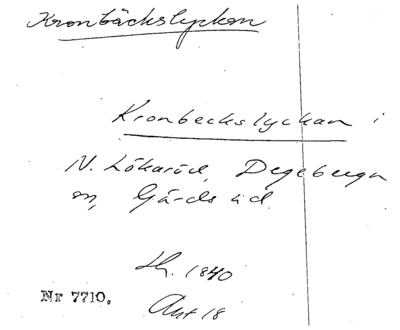 Kronbäckslyckan
Kronbeckslyckan i
N. Lökaröd, Degeberga
sn, Gärds hd.
Lh. 1840
Akt 18
Nr 7710.